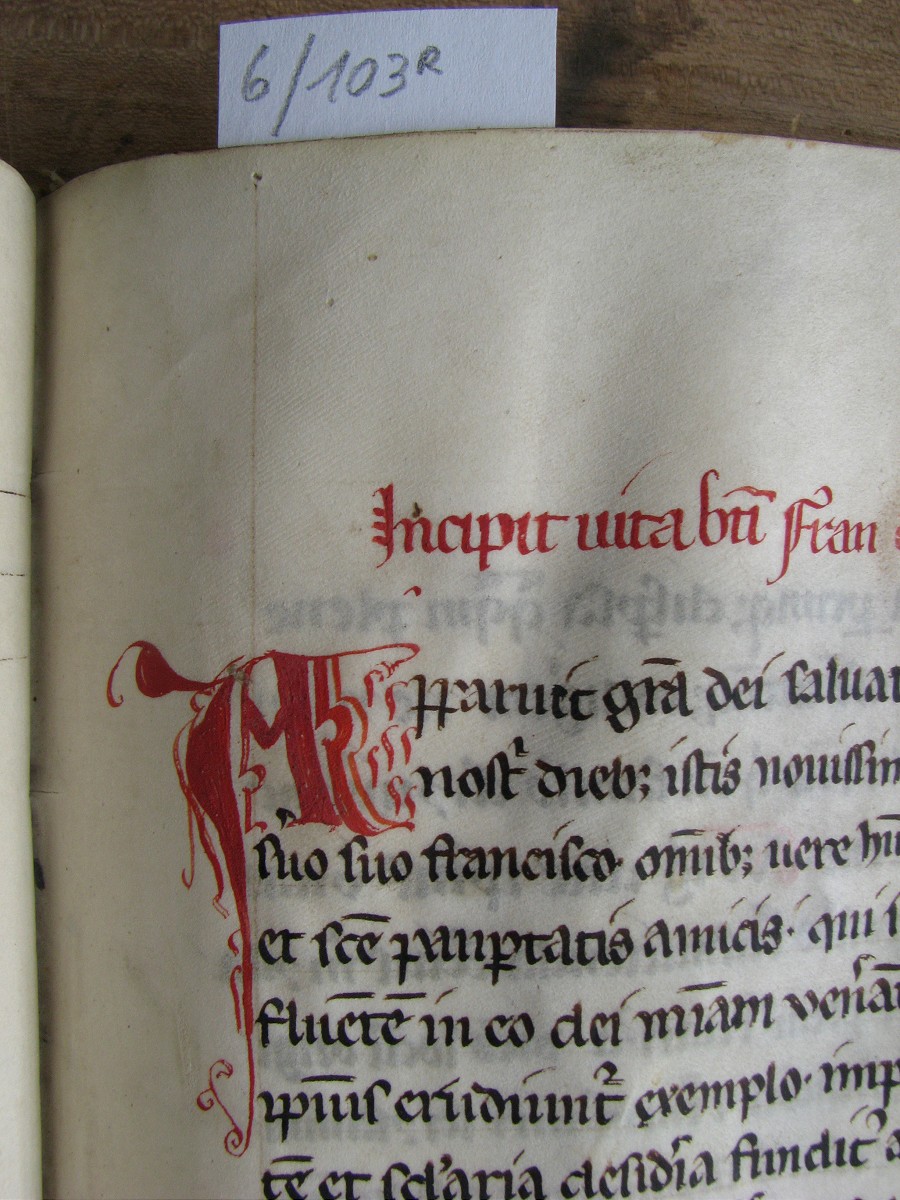 6/103R
Incipit uita bti̅ Fran
Apparuit gra̅ dei saluat
nostꝛ̉ dieb; istis nouissim
s̉uo suo francisco· om̅ib; uere hu̅
et sce̅ paup̲tatis amicis· qui
flue̅te̅ in eo dei mi̅am uen̉at
ip̅ius erudiunt̉ exemplo· imp
te̅ et sc̉laria desid̉ia fundit̉ a